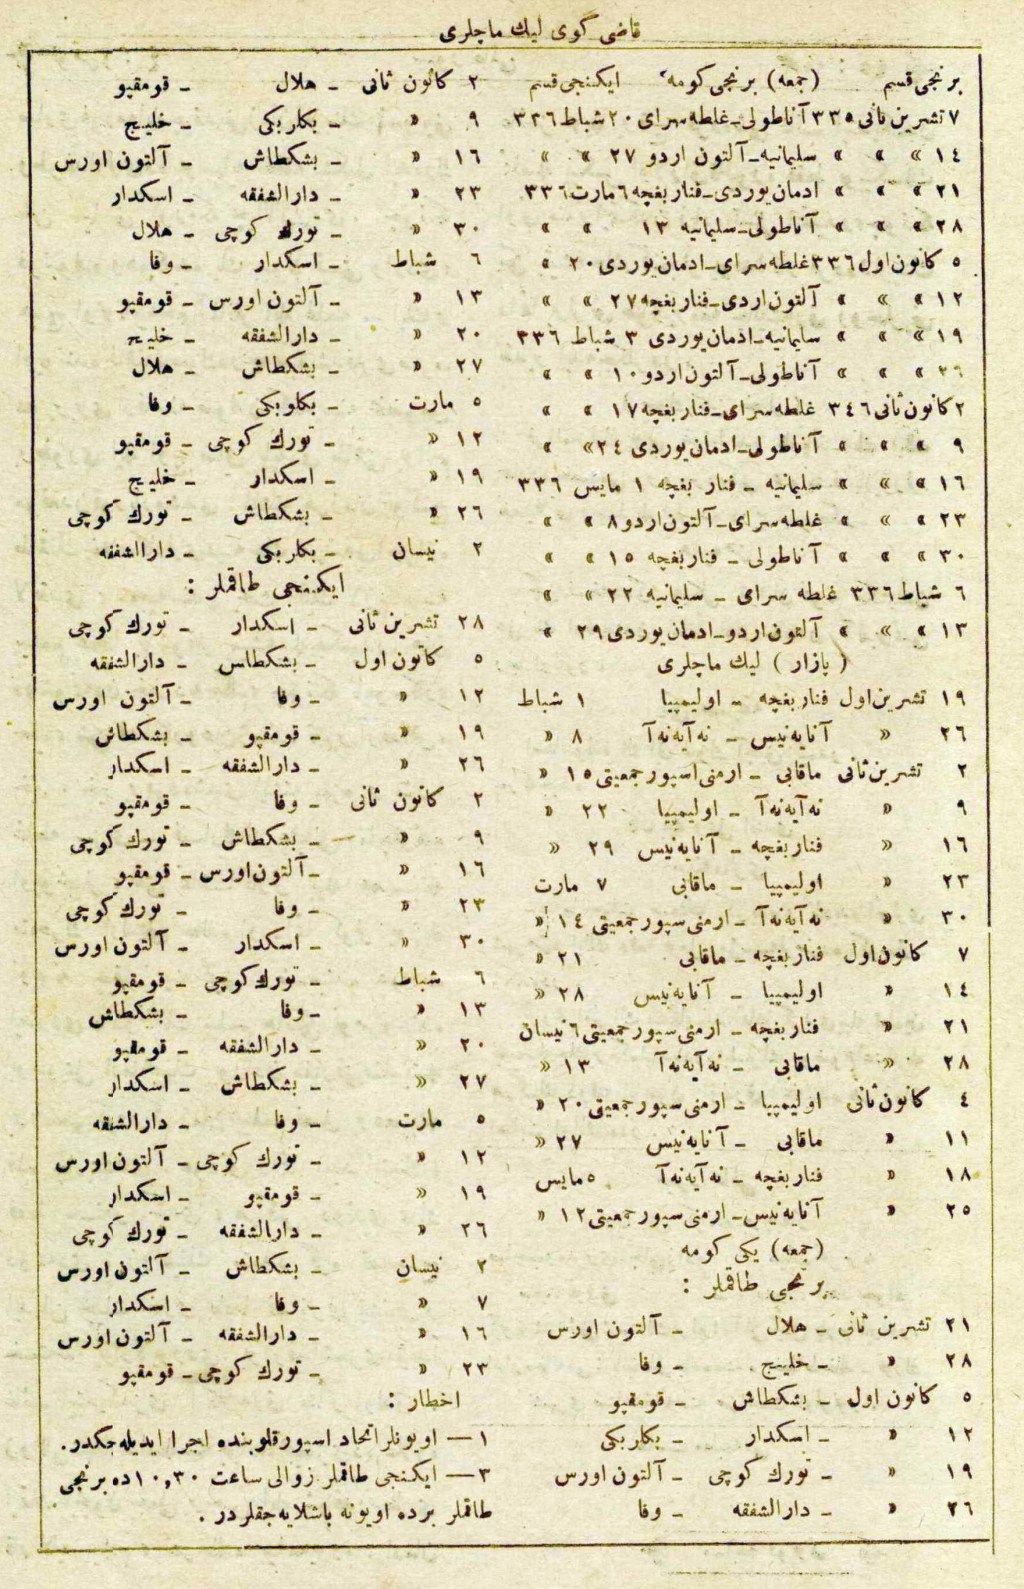 قاضی کوی لیك ماچلری
برنجی قسم (جمعه) برنجی کومه ایکنجی قسم
٧ تشرین ثانی ٣٣٥ آناطولی ــ غلطه سرای ٢٠ شباط ٣٣٦
١٤ » » » سلیمانیه ــ آلتون اردو ٢٧ » »
٢١ » » » ادمان یوردی ــ فنار بغچه ٦ مارت ٣٣٦
٢٨ » » » آناطولی ــ سلیمانیه ١٣ » »
٥ کانون اول ٣٣٦ غلطه سرای ــ ادمان یوردی ٢٠ »
١٢ » » » آلتون اردی ــ فنار بغچه ٢٧ » »
١٩ » » » سلیمانیه ــ ادمان یوردی ٣ شباط ٣٣٦
٢٦ » » » آناطولی ــ آلتون اردو ١٠ » »
٢ کانون ثانی ٣٤٦ غلطه سرای ــ فنار بغچه ١٧ » »
٩ » » » آناطولی ــ ادمان یوردی ٢٤ » »
١٦ » » » سلیمانیه ــ فنار بغچه ١ مایس ٣٣٦
٢٣ » » » غلطه سرای ــ آلتون اردو ٨ » »
٣٠ » » » آناطولی ــ فنار بغچه ١٥ » »
٦ شباط ٣٣٦ غلطه سرای ــ سلیمانیه ٢٢ » »
١٣ » » » آلتون اردو ــ ادمان یوردی ٢٩ »
( پازار ) لیك ماچلری
١٩ تشرین اول فنار بغچه ــ اولیمپیا ١ شباط
٢٦ » آنایه نیس ــ نه آیه نه آ ٨ »
٢ تشرین ثانی ماقابی ــ ارمنی اسپور جمعیتی ١٥ »
٩ » نه آیه نه آ ــ اولیمپیا ٢٢ »
١٦ » فنار بغچه ــ آنایه نیس ٢٩ »
٢٣ » اولیمپیا ــ ماقابی ٧ مارت
٣٠ » نه آیه نه آ ــ ارمنی سپور جمعیتی ١٤ »
٧ کانون اول فنار بغچه ــ ماقابی ٢١ »
١٤ » اولیمپیا ــ آنایه نیس ٢٨ »
٢١ » فنار بغچه ــ ارمنی سپور جمعیتی ٦ نیسان
٢٨ » ماقابی ــ نه آیه نه آ ١٣ »
٤ کانون ثانی اولیمپیا ــ ارمنی سپور جمعیتی ٢٠ »
١١ » ماقابی ــ آنایه نیس ٢٧ »
١٨ » فنار بغچه ــ نه آیه نه آ ٥ مایس
٢٥ » آنایه نیس ــ ارمنی سپور جمعیتی ١٢ »
(جمعه) یکی کومه
برنجی طاقملر :
٢١ تشرین ثانی ــ هلال ــ آلتون اورس
٢٨ » ــ خلیج ــ وفا
٥ کانون اول ــ بشکطاش ــ قومقپو
١٢ » ــ اسکدار ــ بکاربکی
١٩ » ــ تورك کوجی ــ آلتون اورس
٢٦ » ــ دارالشفقه ــ وفا
٢ کانون ثانی ــ هلال ــ قومقپو
٩ » ــ بکاربکی ــ خلیج
١٦ » ــ بشکطاش ــ آلتون اورس
٢٣ » ــ دارالشفقه ــ اسکدار
٣٠ » ــ تورك کوجی ــ هلال
٦ شباط ــ اسکدار ــ وفا
١٣ » ــ آلتون اورس ــ قومقپو
٢٠ » ــ دارالشفقه ــ خلیج
٢٧ » ــ بشکطاش ــ هلال
٥ مارت ــ بکلوبکی ــ وفا
١٢ » ــ تورك کوجی ــ قومقپو
١٩ » ــ اسکدار ــ خلیج
٢٦ » ــ بشکطاش ــ تورك کوجی
٢ نیسان ــ بکاربکی ــ دارالشفقه
ایکنجی طاقملر :
٢٨ تشرین ثانی ــ اسکدار ــ تورك کوجی
٥ کانون اول ــ بشکطاس ــ دارالشفقه
١٢ » ــ وفا ــ آلتون اورس
١٩ » ــ قومقپو ــ بشکطاش
٢٦ » ــ دارالشفقه ــ اسکدار
٢ کانون ثانی ــ وفا ــ قومقپو
٩ » ــ بشکطاش ــ تورك کوجی
١٦ » ــ آلتون اورس ــ قومقپو
٢٣ » ــ وفا ــ تورك کوجی
٣٠ » ــ اسکدار ــ آلتون اورس
٦ شباط ــ تورك کوجی ــ قومقپو
١٣ » ــ وفا ــ بشکطاش
٢٠ » ــ دارالشفقه ــ قومقپو
٢٧ » ــ بشکطاش ــ اسکدار
٥ مارت ــ وفا ــ دارالشفقه
١٢ » ــ تورك کوجی ــ آلتون اورس
١٩ » ــ قومقپو ــ اسکدار
٢٦ » ــ دارالشفقه ــ تورك کوجی
٢ نیسان ــ بشکطاش ــ آلتون اورس
٧ » ــ وفا ــ اسکدار
١٦ » ــ دارالشفقه ــ آلتون اورس
٢٣ » ــ تورك کوجی ــ قومقپو
اخطار :
١ — اویونلر اتحاد اسپور قلوبنده اجرا ایدیله جکدر.
٣ — ایکنجی طاقملر زوالی ساعت ١٠,٣٠ ده برنجی
طاقملر برده اویونه باشلایه جقلردر .